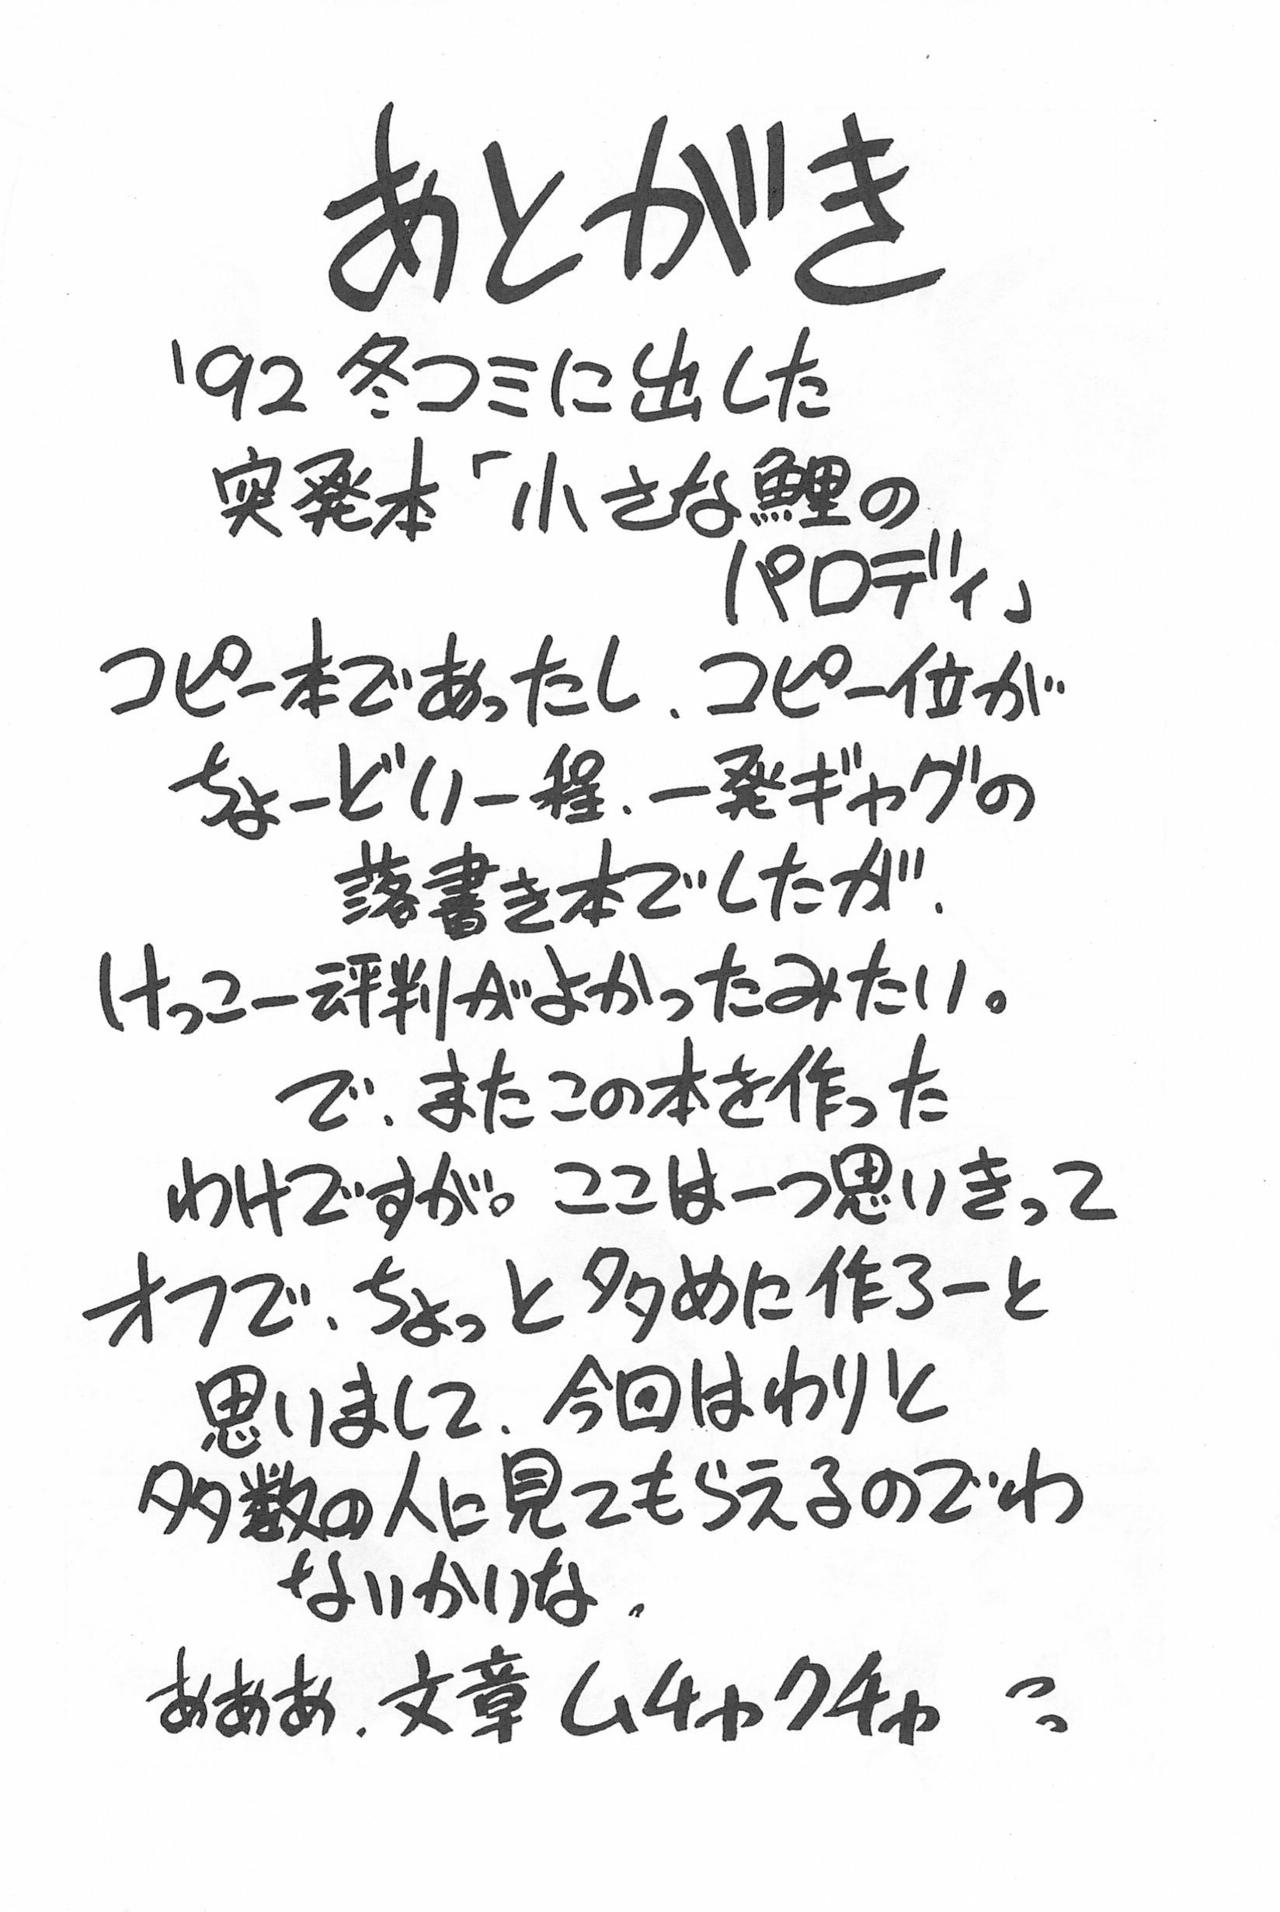 あとがき
'92 冬コミに出した
突発本「小さな鯉の
パロディ」
コピー本であったし、コピー位が
ちょーどいー程、一発ギャグの
落書き本でしたが、
けっこー評判がよかったみたい。
で、またこの本を作った
わけですが。ここは一つ思いきって
オフで、ちょっと多めに作ろーと
思いまして、今回はわりと
多数の人に見てもらえるのでわ
ないかいな、
あああ、文章ムチャクチャ